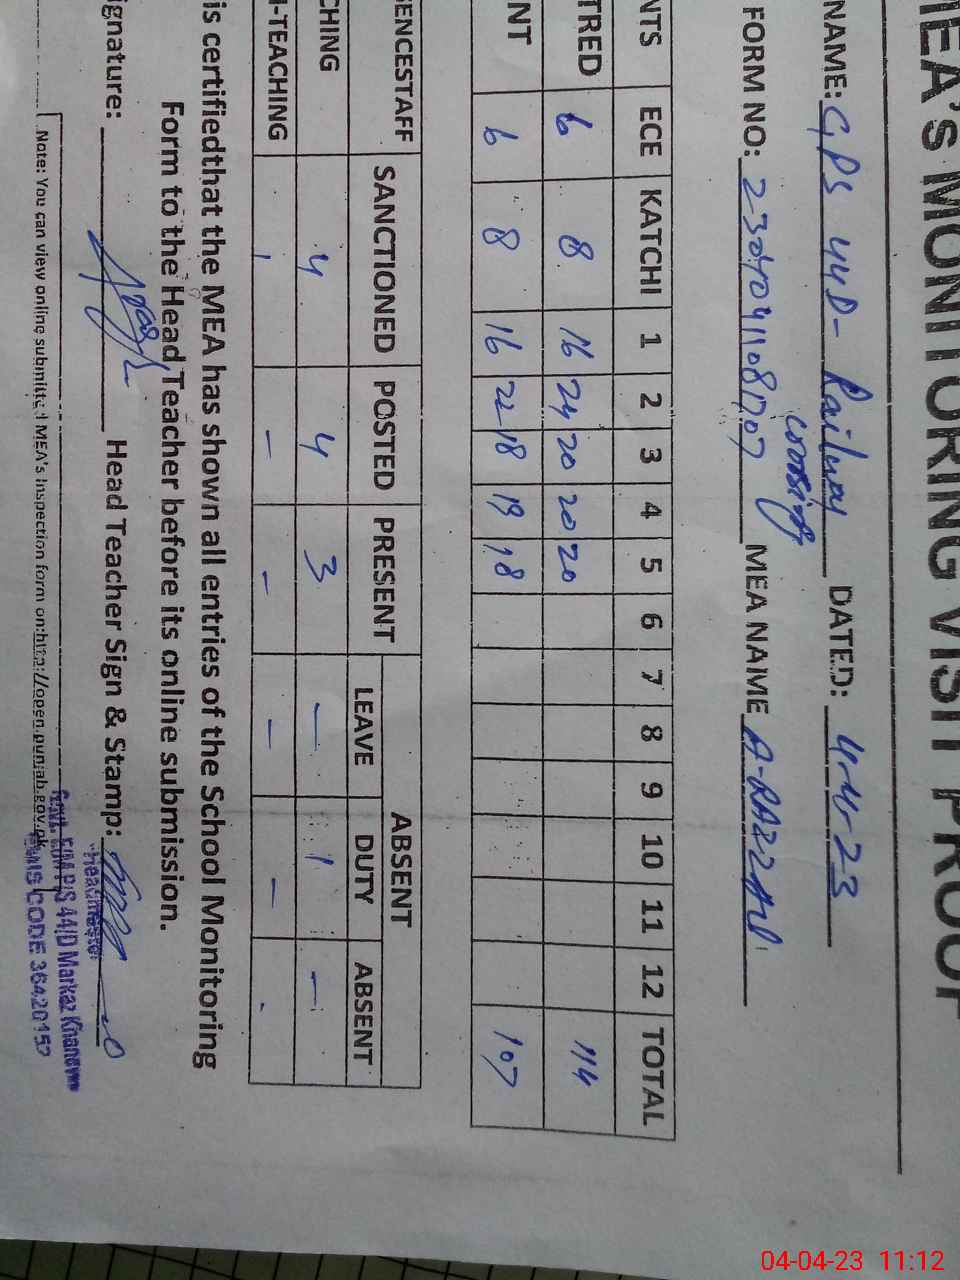 MEA's MONITORING VISIT PROOF
NAME: GPS 44D- Railway crossing DATED: 4-4-23
FORM NO: MEA NAME A-RAZZAQ
NTS ECE KATCHI 1 2 3 4 5 6 7 8 9 10 11 12 TOTAL
TRED 6 8 16 24 20 20 20 114
NT 6 8 16 22 18 19 18 107
GENCESTAFF SANCTIONED POSTED PRESENT ABSENT
LEAVE DUTY ABSENT
CHING 4 4 3 — 1 —
I-TEACHING - - - - - -
is certifiedthat the MEA has shown all entries of the School Monitoring
Form to the Head Teacher before its online submission.
ignature: Head Teacher Sign & Stamp:
Headmaster
Govt. P/S 44/D Markaz
EMIS CODE 36420157
Note: You can view online submitted MEA's Inspection form on:http://open.punjab.gov.pk
04-04-23 11:12